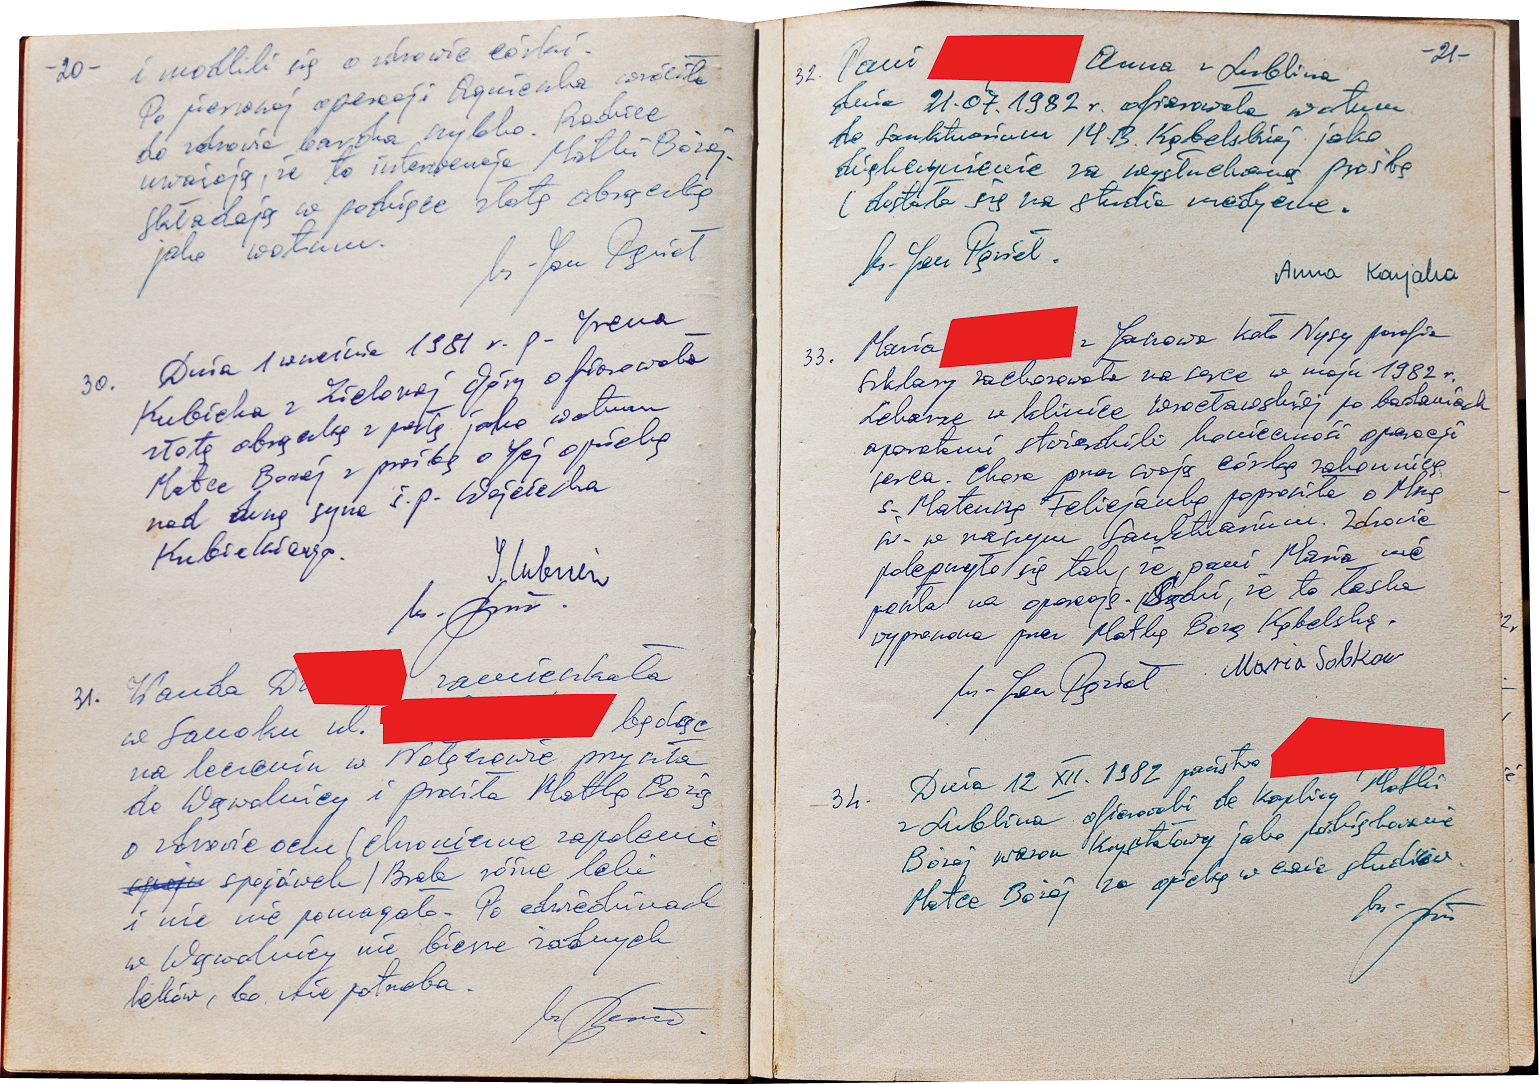 -20-
i modlili się o zdrowie córki.
Po pierwszej operacji Agnieszka wróciła
do zdrowia bardzo szybko. Rodzice
uważają, że to interwencja Matki Bożej.
Składają w podzięce złotą obrączkę
jako wotum.
ks. Jan Pęzioł
30. Dnia 1 września 1981 r. p. Irena
Kubicka z Zielonej Góry ofiarowała
złotą obrączkę z perłą jako wotum
Matce Bożej z prośbą o Jej opiekę
nad duszą syna ś.p. Wojciecha
Kubickiego.
ks.
31. Wanda D zamieszkała
w Sanoku ul. będąc
na leczeniu w Nałęczowie przyszła
do Wąwolnicy i prosiła Matkę Bożą
o zdrowie oczu (chroniczne zapalenie
spojówek) Brała różne leki
i nic nie pomagało. Po odwiedzinach
w Wąwolnicy nie bierze żadnych
leków, bo nie potrzeba.
ks.
-21-
32. Pani Anna z Lublina
dnia 21.07.1982 r. ofiarowała wotum
do Sanktuarium M.B. Kębelskiej jako
dziękczynienie za wysłuchaną prośbę
(dostała się na studia medyczne.
ks. Jan Pęzioł.
Anna
33. Maria z koło Nysy parafia
Szklary zachorowała na serce w maju 1982 r.
Lekarze w klinice wrocławskiej po badaniach
aparatami stwierdzili konieczność operacji
serca. Chora przez swoją córkę zakonnicę
s. Felicjankę poprosiła o Mszę
św. w naszym Sanktuarium. Zdrowie
polepszyło się tak, że pani Maria nie
poszła na operację. Sądzi, że to łaska
wyproszona przez Matkę Bożą Kębelską.
ks. Jan Pęzioł Maria Sobków
34. Dnia 12 XII. 1982 państwo
z Lublina ofiarowali do Kaplicy Matki
Bożej wazon kryształowy jako podziękowanie
Matce Bożej za opiekę w czasie studiów.
ks.